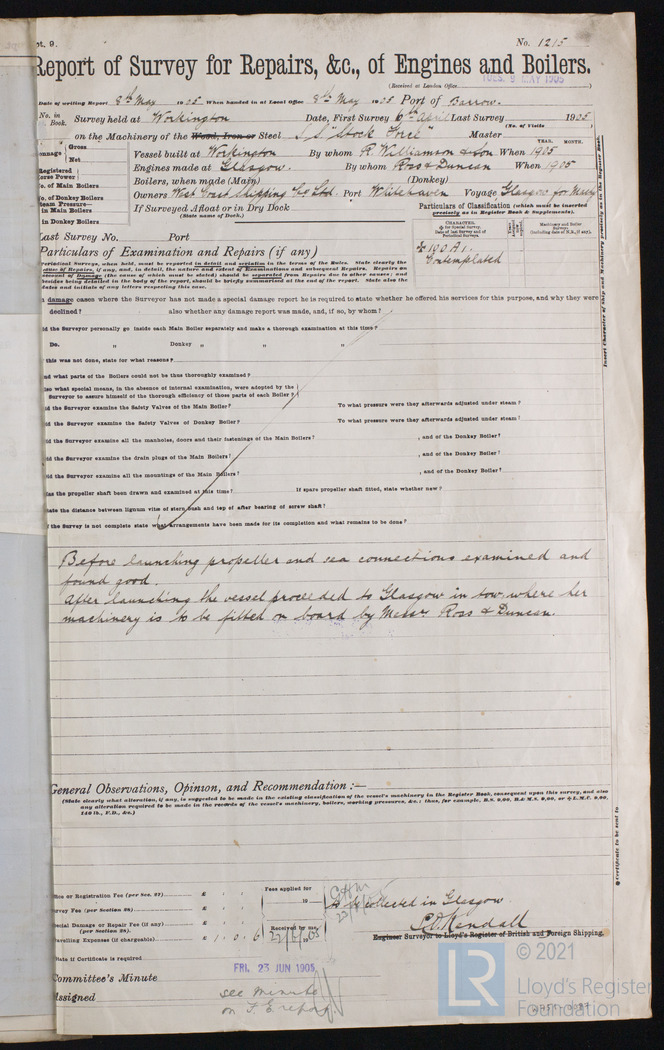 pt. 9.
No. 1215
Report of Survey for Repairs, &c., of Engines and Boilers.
(Received at London Office
TUES. 9 MAY 1905
Date of writing Report 8th May 1905 When handed in at Local Office 8th May 1905 Port of Barrow.
No. in Book.
Survey held at Workington Date, First Survey 6th April Last Survey 1905
(No. of Visits
on the Machinery of the Wood, Iron or Steel S S "Stock Force" Master
Gross
Net
Vessel built at Workington By whom R. Williamson & Son When 1905
YEAR. MONTH.
Registered Horse Power
Engines made at Glasgow. By whom Ross & Duncan When 1905
No. of Main Boilers
Boilers, when made (Main) (Donkey)
No. of Donkey Boilers
Owners West Coast Shipping Co Ltd. Port Whitehaven Voyage Glasgow for
Steam Pressure—
in Main Boilers
in Donkey Boilers
If Surveyed Afloat or in Dry Dock
(State name of Dock.)
Particulars of Classification (which must be inserted
precisely as in Register Book & Supplements).
Last Survey No. Port
+100 A1.
Contemplated
Particulars of Examination and Repairs (if any)
Periodical Surveys, when held, must be reported in detail and seriatim in the terms of the Rules. State clearly the
cause of Repairs, if any, and, in detail, the nature and extent of Examinations and subsequent Repairs. Repairs on
account of Damage (the cause of which must be stated) should be separated from Repairs due to other causes; and
besides being detailed in the body of the report, should be briefly summarized at the end of the report. State also the
dates and initials of any letters respecting this case.
In damage cases where the Surveyor has not made a special damage report he is required to state whether he offered his services for this purpose, and why they were
declined? also whether any damage report was made, and, if so, by whom?
Did the Surveyor personally go inside each Main Boiler separately and make a thorough examination at this time?
Do. „ Donkey „ „ „
If this was not done, state for what reasons?
And what parts of the Boilers could not be thus thoroughly examined?
Also what special means, in the absence of internal examination, were adopted by the
Surveyor to assure himself of the thorough efficiency of those parts of each Boiler?
Did the Surveyor examine the Safety Valves of the Main Boiler? To what pressure were they afterwards adjusted under steam?
Did the Surveyor examine the Safety Valves of Donkey Boiler? To what pressure were they afterwards adjusted under steam?
Did the Surveyor examine all the manholes, doors and their fastenings of the Main Boilers? , and of the Donkey Boiler?
Did the Surveyor examine the drain plugs of the Main Boilers? , and of the Donkey Boiler?
Did the Surveyor examine all the mountings of the Main Boilers? , and of the Donkey Boiler?
Has the propeller shaft been drawn and examined at this time? If spare propeller shaft fitted, state whether new?
State the distance between lignum vitæ of stern bush and top of after bearing of screw shaft?
If the Survey is not complete state what arrangements have been made for its completion and what remains to be done?
Before launching propeller and sea connections examined and
found good.
After launching the vessel proceeded to Glasgow in tow, where her
machinery is to be fitted on board by Messrs Ross & Duncan.
General Observations, Opinion, and Recommendation :—
(State clearly what alteration, if any, is suggested to be made in the existing classification of the vessel's machinery in the Register Book, consequent upon this survey, and also
any alteration required to be made in the records of the vessel's machinery, boilers, working pressures, &c.; thus, for example, B.S. 9,00, B.& M.S. 9,00, or + L.M.C. 9,00,
140 lb., F.D., &c.)
Office or Registration Fee (per Sec. 27) £
Fees applied for
19
collected in Glasgow
Survey Fee (per Section 28) £
Special Damage or Repair Fee (if any)
(per Section 28). £
Received by me,
Travelling Expenses (if chargeable) £ 1 . 0 . 6
22/6/05
Kendall
Engineer Surveyor to Lloyd's Register of British and Foreign Shipping.
State if Certificate is required
FRI. 23 JUN 1905
Committee's Minute
Assigned
see minute
on F.E. report.
Insert Character of Ship and Machinery precisely as in the Register Book
Certificate to be sent to
© 2021
LR
Lloyd's Register
Foundation